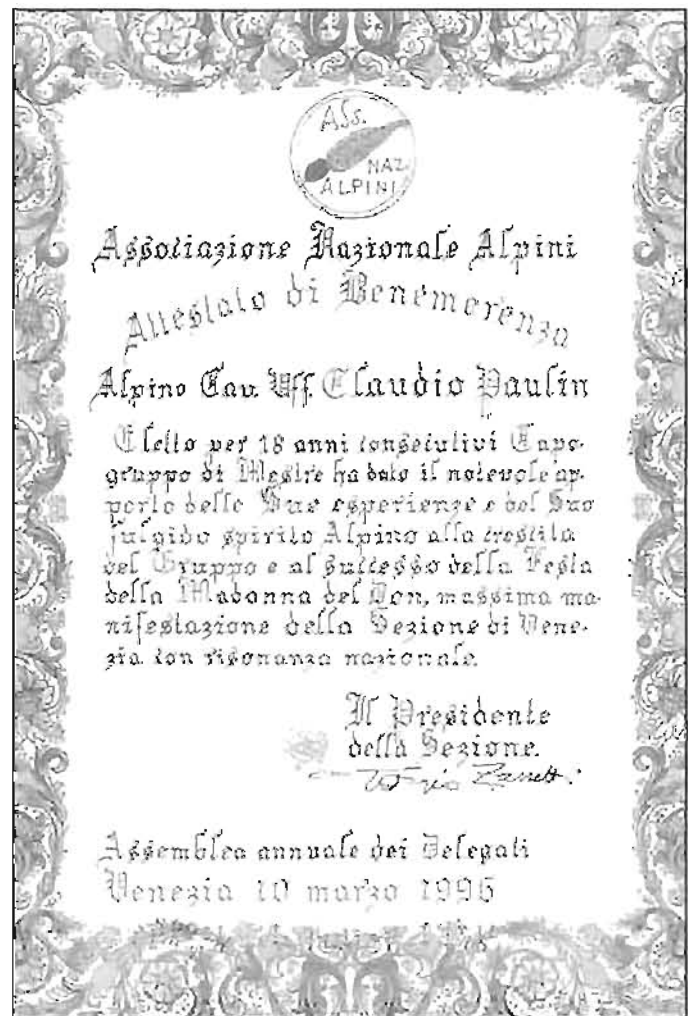 Ass.
NAZ.
ALPINI
Associazione Nazionale Alpini
Attestato di Benemerenza
Alpino Cav. Uff. Claudio Paulin
Eletto per 18 anni consecutivi Capo-
gruppo di Mestre ha dato il notevole ap-
porto delle Sue esperienze e del Suo
fulgido spirito Alpino alla crescita
del Gruppo e al successo della Festa
della Madonna del Don, massima ma-
nifestazione della Sezione di Vene-
zia con risonanza nazionale.
Il Presidente
della Sezione.
Assemblea annuale dei Delegati
Venezia 10 marzo 1996